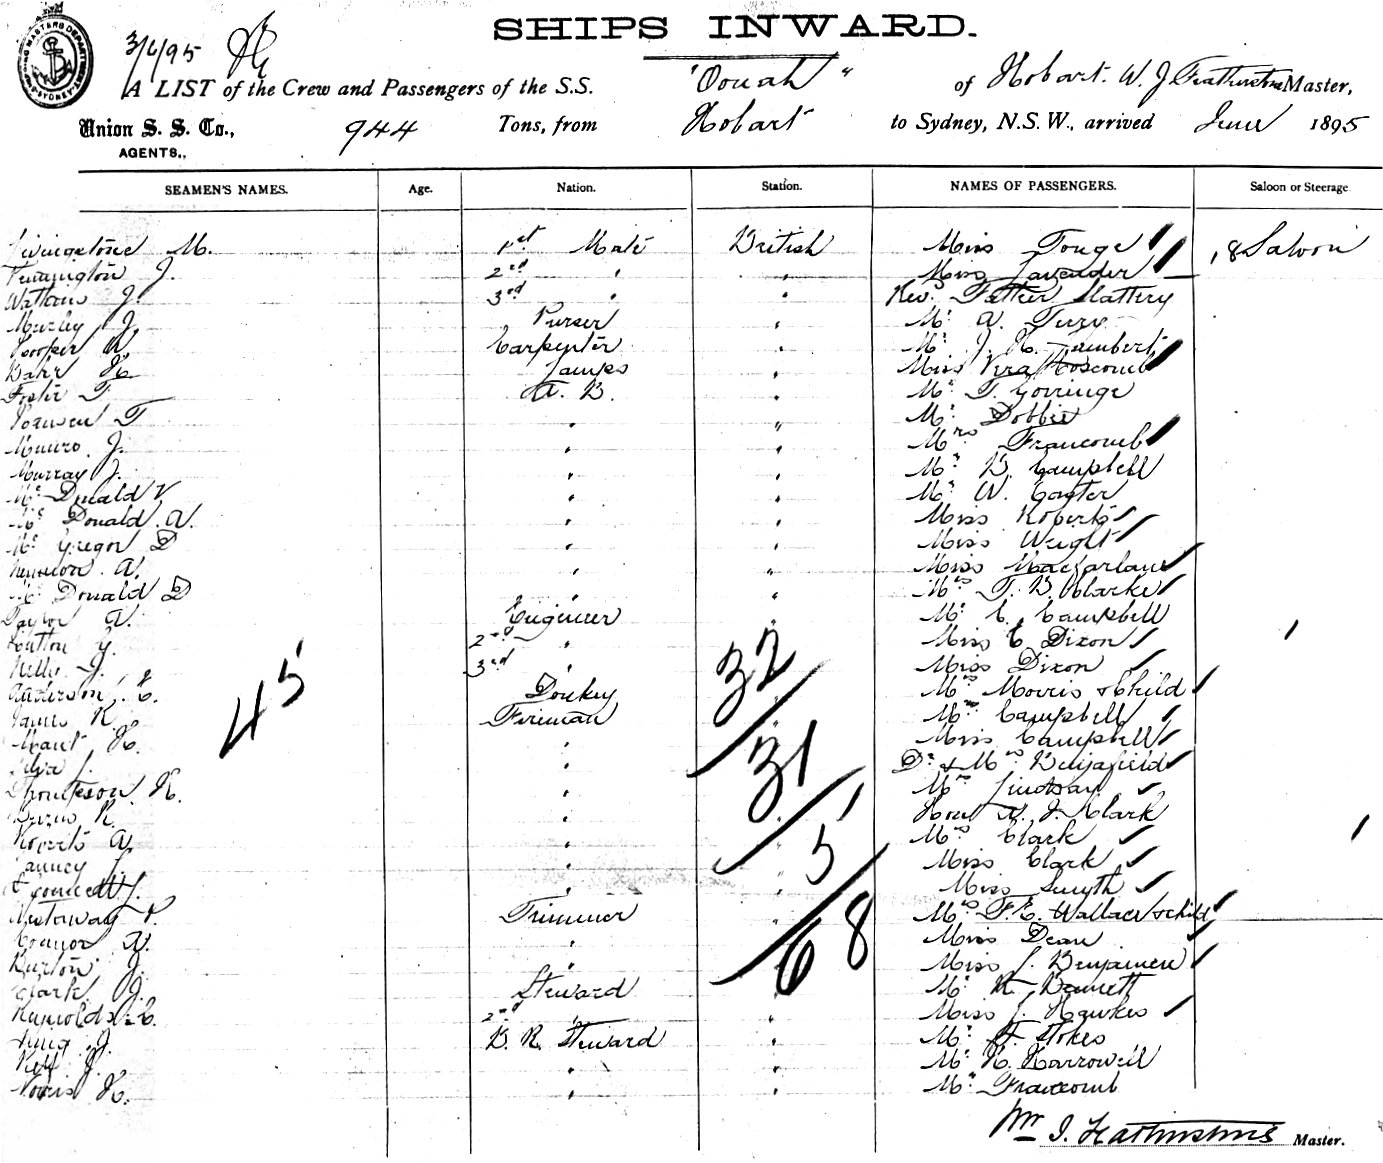 SHIPS INWARD.
3/6/95
A LIST of the Crew and Passengers of the S.S. "Oonah" of Hobart. W. J. Featherstone Master,
Union S. S. Co., 944 Tons, from Hobart to Sydney, N.S.W., arrived June 1895
AGENTS.,
SEAMEN'S NAMES. Age. Nation. Station. NAMES OF PASSENGERS. Saloon or Steerage
Livingstone M. 1st Mate British Miss Tonge 18 Saloon
J. 2nd " " Miss Lavender
J. 3rd " " Revd Father Slattery
J. Purser " Mr A.
Cooper W. Carpenter " Mr J. H. Lambert
H. Lamps " Miss Vera
Foster T A. B. " Mr T. Gorringe
T " " Mr Dobbie
Munro. J. " " Mrs Francomb
Murray J. " " Mr D. Campbell
Mc Donald V " " Mr W.
Mc Donald. A. " " Miss Roberts
Mc Gregor D " " Miss Weight
A. " " Miss Macfarlane
Mc Donald D " " Mrs T. B. Clarke
Taylor A. Engineer " Mr C. Campbell
G. 2nd " Miss C Dixon
Kelly J. 3rd " Miss Dixon
Anderson, C. Donkey Mrs Morris & Child
James R. Fireman Mrs Campbell
Mant H. " Miss Campbell
Silva J. " Dr & Mrs Benjafield
Thompson. R. " Mrs Lindsay
R. " Hon W. J. Clark
Roberts A. " Mrs Clark
" Miss Clark
J. " Miss Smyth
P. Trimmer Mrs F. E. Wallace & child
Connor A. " Miss Dean
Burton J. " Miss J. Benjamin
Clark J. Steward Mr R. Bennett
Reynolds C. 2nd " " Miss J. Hawkes
King J. B. R. Steward " Mr F. Stokes
J. " " Mr H.
Norris H. " " Mr Francomb
45
32
31
5
68
Wm J. Featherstone Master.